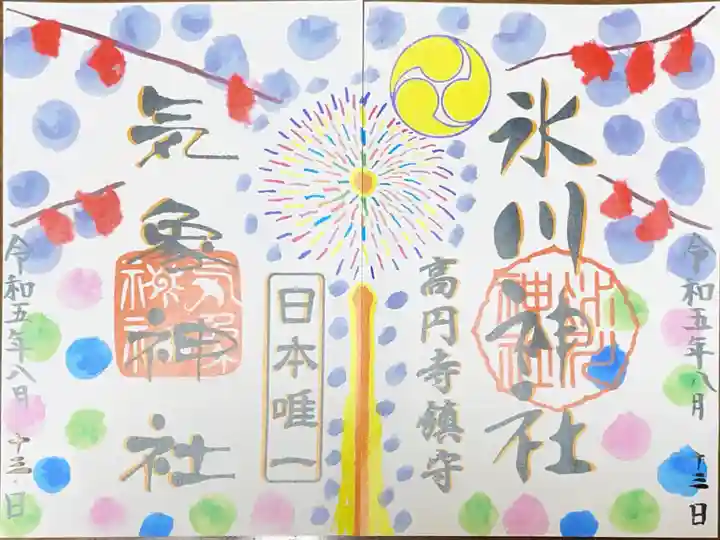 令和五年八月 十三日
氷川神社
高円寺鎮守
日本唯一
気象神社
令和五年八日 十三日